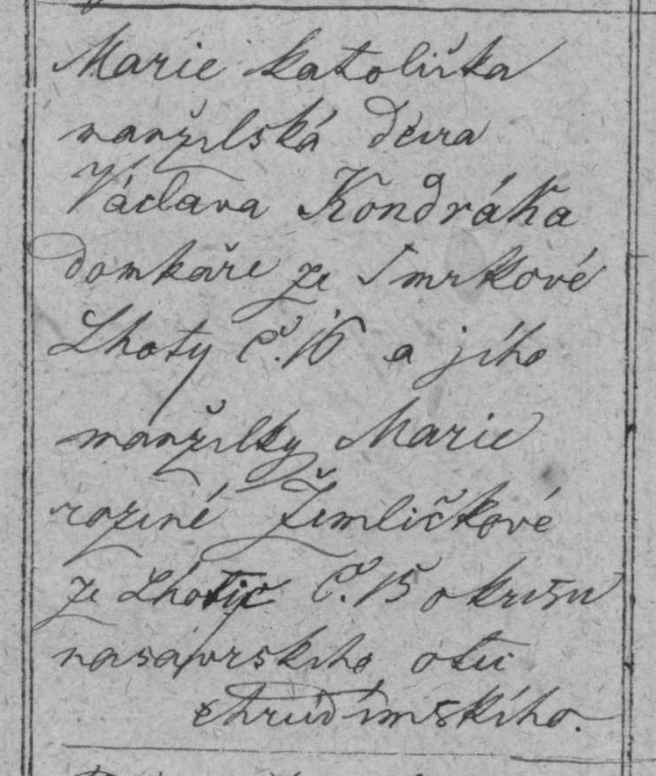 Marie katolička
manželská dcera
Václava Kondráka
domkáře ze Smrkové
Lhoty č. 16 a jeho
manželky Marie
rozené Žemličkové
ze Lhotic č. 15 okresu
nasavrskeho
chrudimského.